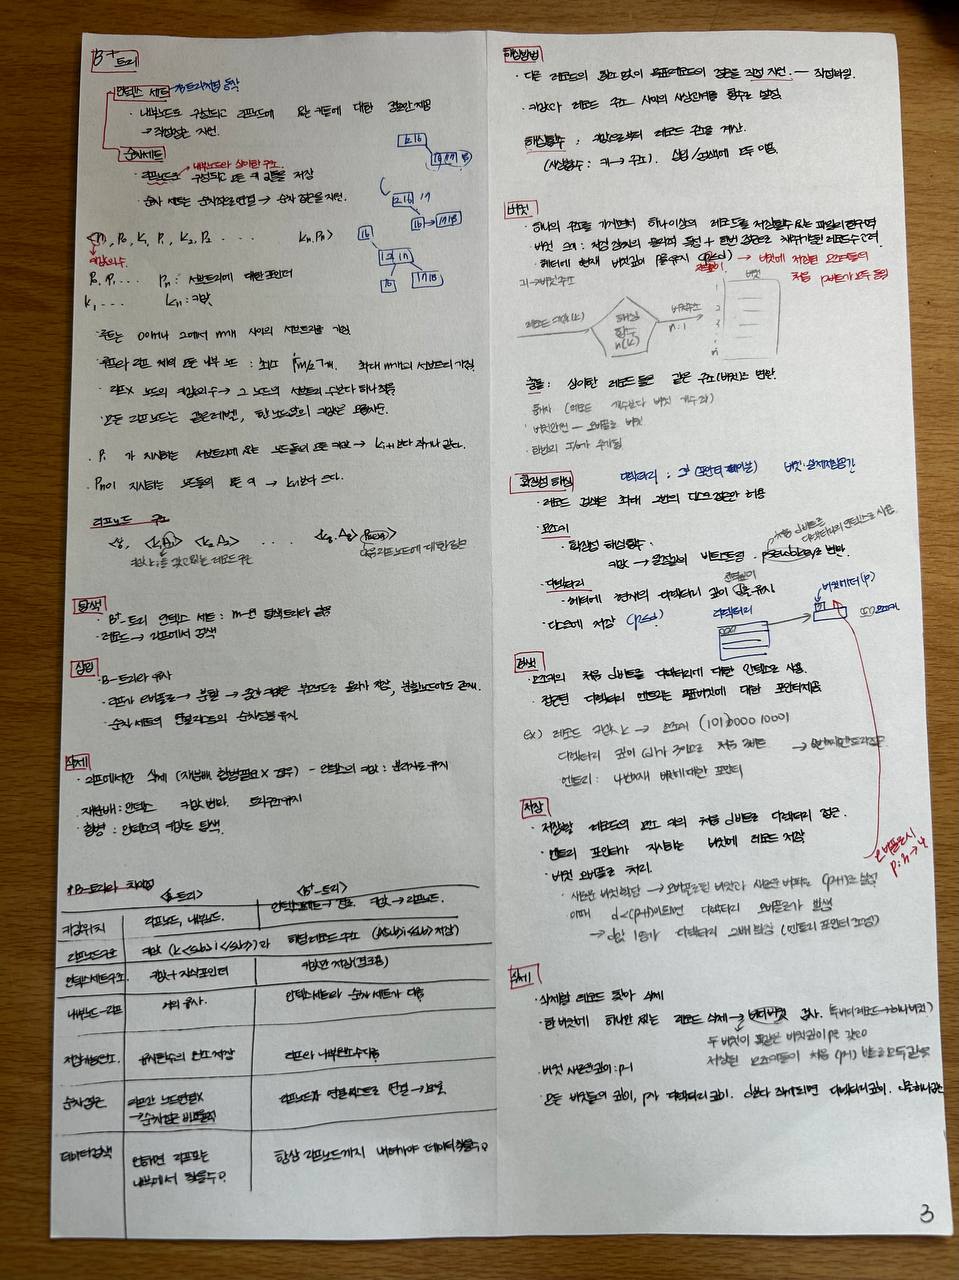 B+ 트리
인덱스 세트
· 내부노드로 구성되고 리프노드에 있는 키들에 대한 경로만 제공
→ 직접접근 지원.
순차세트
내부노드와 상이한 구조.
· 리프노드로 구성되고 모든 키 값들을 저장
· 순차 세트는 순차적으로 연결 → 순차 접근을 지원.
<n, P₀, K₁, P₁, K₂, P₂ . . . . Kn, Pn>
키값의 수.
P₀, P₁ . . . Pn : 서브트리에 대한 포인터
K₁ . . . Kn : 키값
· 루트는 0이거나 2에서 m개 사이의 서브트리를 가짐
· 루트와 리프 제외 모든 내부 노드 : 최소 ⌈m/2⌉개. 최대 m개의 서브트리 가짐.
· 리프X 노드의 키값의 수 → 그 노드의 서브트리 수보다 하나 적음
· 모든 리프노드는 같은레벨, 한 노드안의 키값은 오름차순.
· Pi 가 지시하는 서브트리에 있는 노드들의 모든 키값 → Ki+1보다 작거나 같다.
· Pn이 지시하는 노드들의 모든 키 → Kn보다 크다.
리프노드 구조
<q, <K₁,A₁> <K₂,A₂> . . . . <Kq, Aq> Pnext>
키값 Ki를 갖고 있는 레코드 주소
다음 리프노드에 대한 링크
탐색
· B+-트리 인덱스 세트 : m-원 탐색트리와 같음
· 레코드 → 리프에서 검색
삽입
· B-트리와 유사
· 리프가 오버플로 → 분할 → 중간 키값은 부모노드로 올라가 저장, 분할노드에도 존재.
· 순차 세트의 연결리스트의 순차성을 유지
삭제
· 리프에서만 삭제 (재분배 합병필요X 경우) - 인덱스의 키값 : 분리자로 유지
· 재분배 : 인덱스 키값 변화. 트리구조유지
· 합병 : 인덱스의 키값도 삭제.
*B-트리와 차이점
<B-트리> <B+-트리>
키값위치 리프노드, 내부노드. 인덱스세트 → 경로. 키값 → 리프노드.
리프노드구조 키값 (K<sub>i</sub>)과 해당레코드 주소 (A<sub>i</sub> 저장)
인덱스세트구조. 키값 + 자식포인터 키값만 저장(경로용)
내부노드-리프 거의 유사. 인덱스세트와 순차 세트가 다름
저장가능원소. 동일한수의 원소 저장 리프와 내부원소수다름
순차접근 리프간 노드연결X → 순차접근 비효율적 리프노드가 연결리스트로 연결 → 효율
데이터검색 안하면 리프또는 내부에서 찾을수O 항상 리프노드까지 내려가야 데이터찾을수O
해싱방법
· 다른 레코드의 참조 없이 목표레코드의 접근을 직접 지원. — 직접파일.
· 키값과 레코드 주소 사이의 사상관계를 함수로 설정
해싱함수 : 키값으로부터 레코드 주소를 계산.
(사상함수 : 키 → 주소). 삽입/검색에 모두 이용.
버킷
· 하나의 주소를 가지면서 하나 이상의 레코드를 저장할수 있는 파일의 한구역
· 버킷 크기 : 저장 장치의 물리적 특성 + 한번 접근으로 채취가능한 레코드수 고려
· 헤더에 현재 버킷깊이 P를 유지 (P≤d) → 버킷에 저장된 모조키들의
처음 p비트가 모두 동일
키→버킷주소
레코드 키값(k)
해싱 함수 h(k)
버킷주소
n : 1
버킷
1
2
3
n
충돌 : 상이한 레코드 들은 같은 주소(버킷)로 변환.
· 버킷만원 — 오버플로 버킷
· 한번의 I/O가 추가됨
확장성 해싱
· 레코드 검색은 최대 2번의 디스크 접근만 허용
모조키
· 확장성 해싱함수 :
키값 → 일정길이 비트스트링. pseudokey로 변환
· 디렉터리
· 헤더에 현재의 디렉터리 깊이 d를 유지
· 디스크에 저장 (P≤d)
디렉터리
버킷헤더(P)
검색
· 모조키의 처음 d비트를 디렉터리에 대한 인덱스로 사용.
· 접근된 디렉터리 엔트리는 목표버킷에 대한 포인터제공
ex) 레코드 키값 k → 모조키 (101000010001
디렉터리 깊이 (d)가 3이므로 처음 3비트
엔트리 : 4번째 버킷에대한 포인터
저장
· 저장할 레코드의 모조 키의 처음 d비트로 디렉터리 접근.
· 엔트리 포인터가 지시하는 버킷에 레코드 저장
· 버킷 오버플로 처리.
· 새로운 버킷할당 → 오버플로된 버킷과 새로운 버킷도 (P+1)로 설정
이때 d<(P+1)이되면 디렉터리 오버플로가 발생
→ d값 1증가 디렉터리 2배 확장 (엔트리 포인터 조정)
오버플로시
삭제
· 삭제할 레코드 찾아 삭제
· 한 버킷에 하나만 있는 레코드 삭제 → 버디버킷 검사. (두 버디 레코드 → 하나버킷)
두 버킷이 똑같은 버킷깊이 P로 갖고
저장된 모조키들이 처음 (P-1) 비트로 모두 같을때
· 버킷 새로운깊이 : P-1
· 모든 버킷들의 깊이, P가 디렉터리깊이. d보다 작게되면 디렉터리깊이. d를 하나감소
3